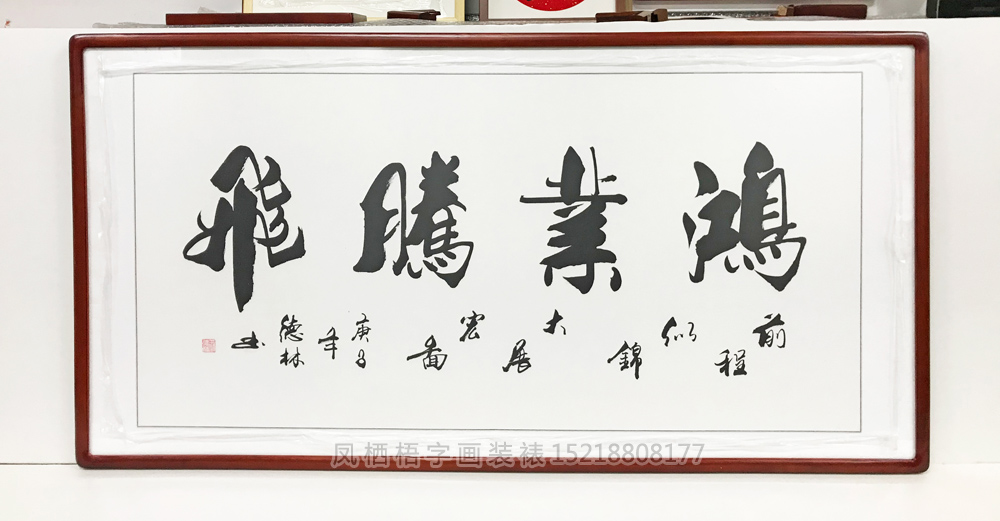 鴻業騰飛
前程似錦大展宏圖
庚子年
德林书
凤栖梧字画装裱15218808177